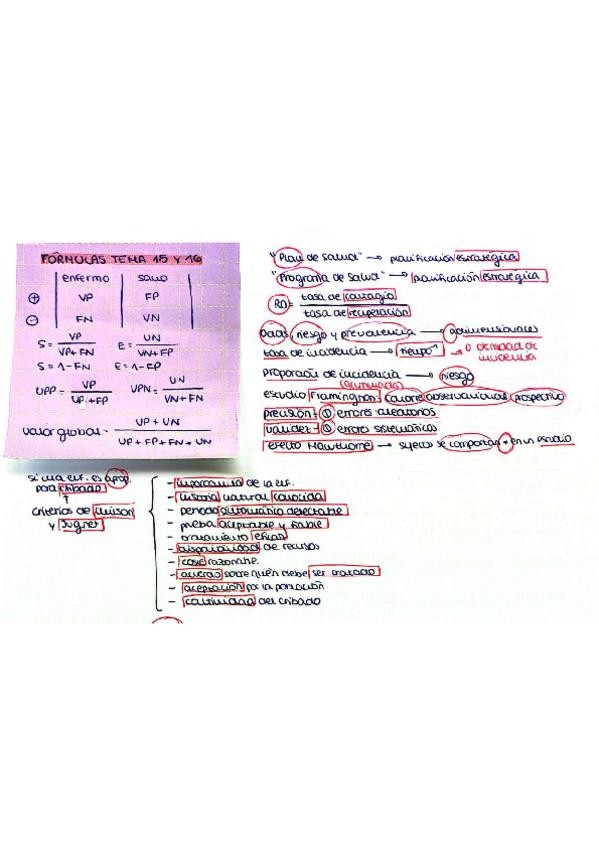 FÓRMULAS TEMA 15 Y 16
enfermo sano
+ VP FP
- FN VN
S = VP / VP+FN E = VN / VN+FP
S = 1-FN E = 1-FP
VPP = VP / VP+FP VPN = VN / VN+FN
valor global = VP + VN / VP + FP + FN + VN
"Plan de salud" → planificación estratégica
"Programa de salud" → planificación estratégica
R0 = tasa de contagio / tasa de recuperación
Odds, riesgo y prevalencia → adimensionales
tasa de incidencia → tiempo⁻¹ → o densidad de incidencia
Proporción de incidencia → riesgo
(acumulada)
estudio Framingham: cohorte observacional prospectivo
precisión: ↓ errores aleatorios
validez: ↓ errores sistemáticos
efecto Hawthorne → sujetos se comportan ≠ en un estudio
si una enf. es aprop.
para cribado
↑
Criterios de Wilson
y Jugner
- importancia de la enf.
- historia natural conocida
- periodo sintomático detectable
- prueba aceptable y fiable
- tratamiento eficaz
- disponibilidad de recursos
- coste razonable.
- acuerdo sobre quién debe ser tratado
- aceptación por la población
- continuidad del cribado